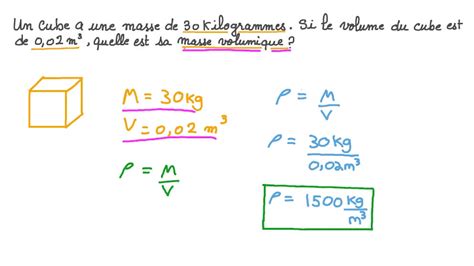 Un cube a une masse de 30 kilogrammes. Si le volume du cube est
de 0,02 m³, quelle est sa masse volumique ?
M = 30 kg
V = 0,02 m³
ρ = M/V
ρ = M/V
ρ = 30 kg/0,02 m³
ρ = 1500 kg/m³